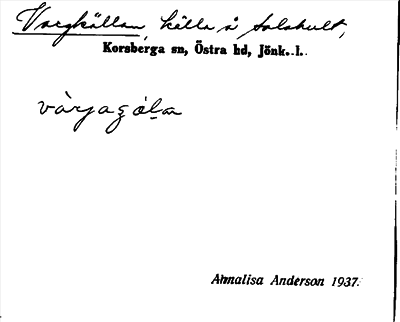 Vargkällan, källa å Solahult,
Korsberga sn, Östra hd, Jönk. l.
Annalisa Anderson 1937.